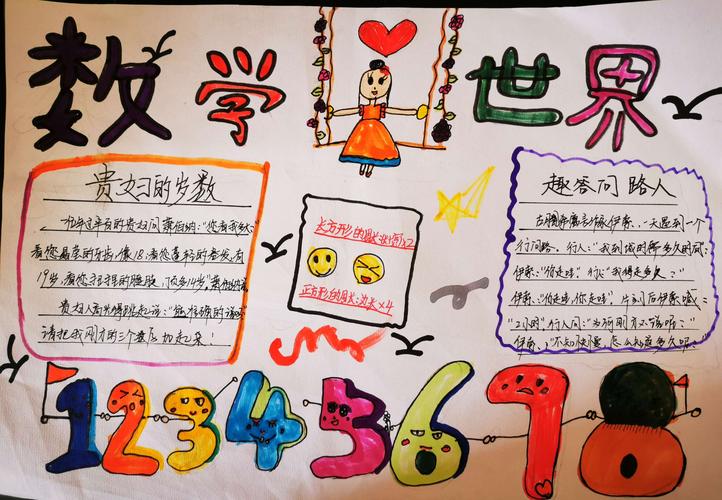 数学世界
贵妇的岁数
一位半老年的贵妇问萧伯纳:"您看我多大
看您晶莹的牙齿,像18,看您蓬松的卷发,有
19岁,看您的腰肢,顶多14岁"萧伯纳说
贵妇人高兴得跳起说:"您
请把我刚才的三个数加起来!
长方形的周长:(长+宽)×2
正方形的周长:边长×4
趣答问路人
古希腊寓言家伊索,一天遇到一个
行问路,行人:"我到城的多久的
伊索:"你走哇"行人:"我得走多久?"
伊索:"你走哇,你走哇"片刻后伊索喊:
"2小时"行人问:"为何刚才不说呢?"
伊索:"不知快慢,怎么知道多久呢
12345678